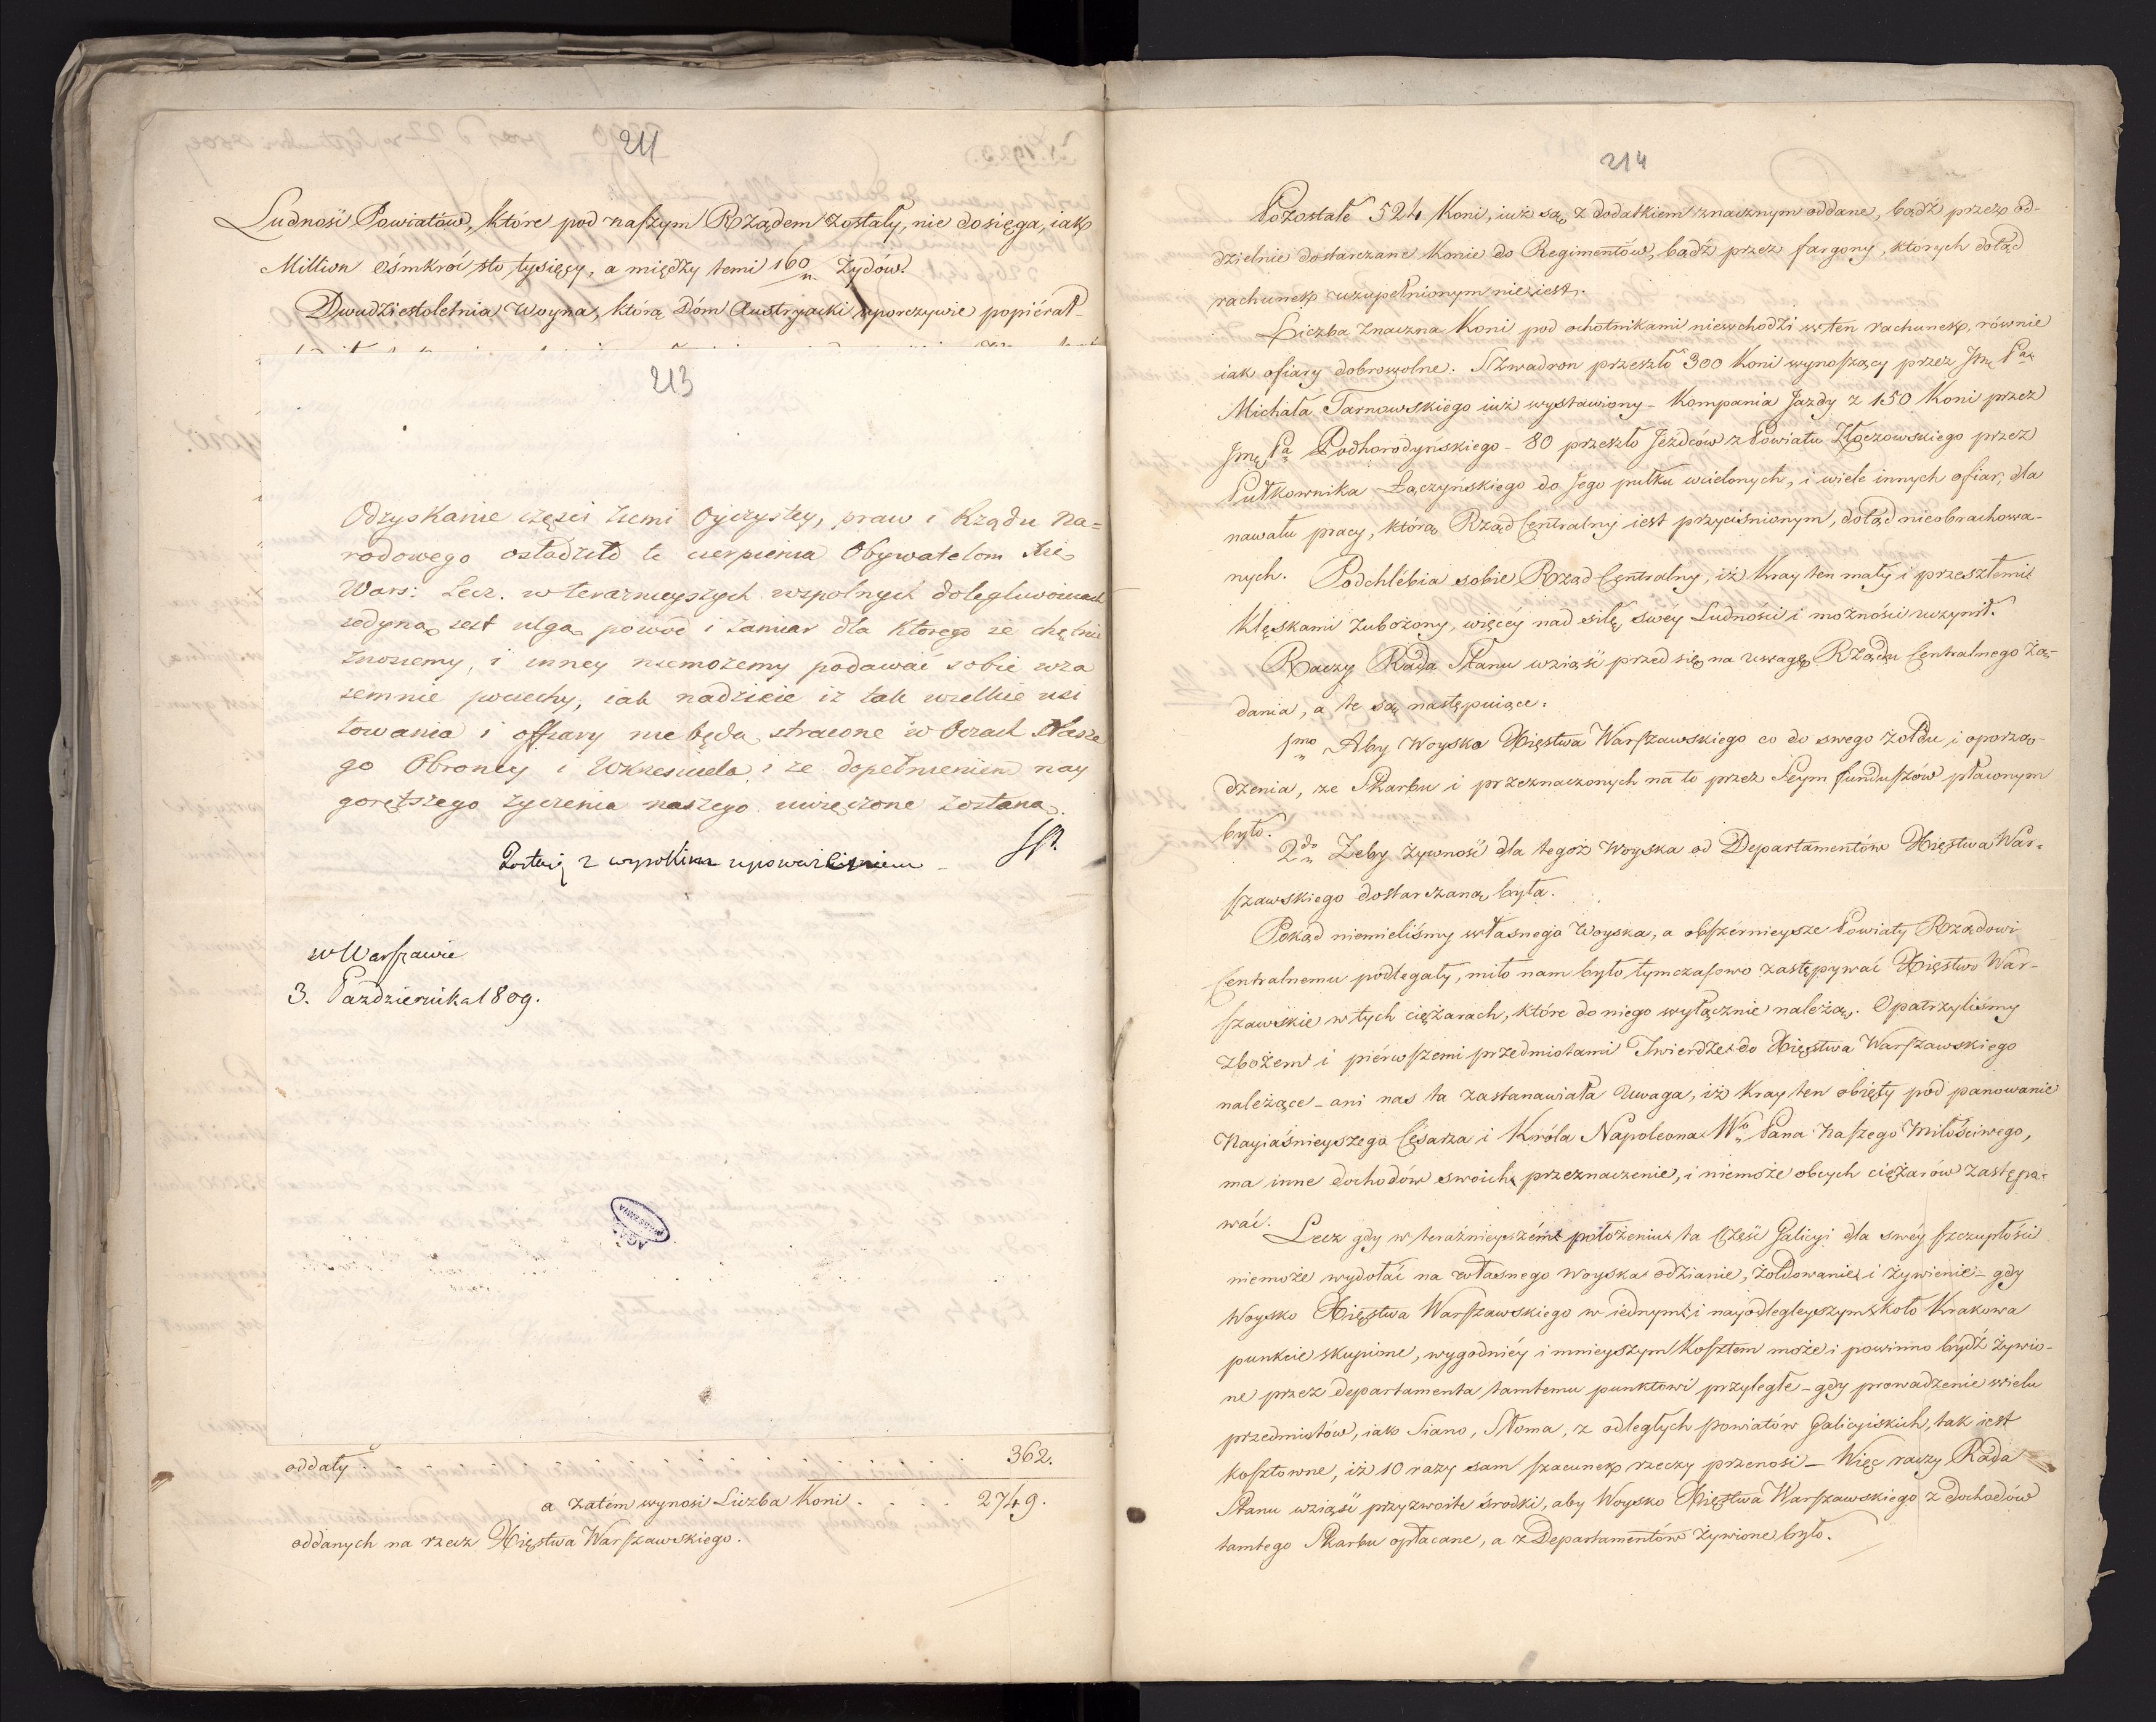 211
Ludność Powiatów, które pod naszym Rządem zostały, nie dosięga, iak
Million ośmkroć sto tysięcy, a między temi 160 m Żydów.
Dwudziestoletnia Woyna, którą Dóm Austryacki uporczywie popiérał
213
Odzyskanie części ziemi Oyczystey, praw i Rządu Na=
rodowego osłodziło te cierpienia Obywatelom Xię
Wars: Lecz w teraznieyszych wspolnych dolegliwościach
iedyną iest ulgą powód i zamiar dla ktorego ie chętnie
znosiemy, i inney niemożemy podawać sobie wza
iemnie pociechy, iak nadzieie iż tak wielkie usi
łowania i offiary nie będą stracone w Oczach Nasze
go Obroncy i Wskrzesiciela i że dopełnieniem nay
gorętszego życzenia naszego uwieńczone zostaną.
Zostaię z wysokim upoważeniem
w Warszawie
3. Pazdziernika 1809.
AGAD
WARSZAWA
oddały . . . . . . . . . . . . . . . . 362.
a zatém wynosi Liczba Koni . . . . 2749.
oddanych na rzecz Xięstwa Warszawskiego.
214
Pozostałe 524 Koni, iuż są z dodatkiem znacznym oddane, bądź przez od-
dzielnie dostarczane Konie do Regimentów, bądź przez furgony, których dotąd
rachunek uzupełnionym nie iest.
Liczba znaczna Koni pod ochotnikami niewchodzi w ten rachunek, równie
iak ofiary dobrowolne. Szwadron przeszło 300 Koni wynoszący przez Jmć Pa
Michała Tarnowskiego iuż wystawiony – Kompania Jazdy z 150 Koni przez
Jmć Pa Podhorodyńskiego – 80 przeszło Jeźdców z Powiatu Złoczowskiego przez
Pułkownika Łączyńskiego do Jego pułku wcielonych, i wiele innych ofiar, dla
nawału pracy, którą Rząd Centralny iest przyciśnionym, dotąd nieobrachowa-
nych. Podchlébia sobie Rząd Centralny, iż Kray ten mały i przeszłemi
Klęskami zubożony, więcéy nad siłę swéy Ludności i możności uczynił.
Raczy Rada Stanu wziąść przed się na uwagę Rządu Centralnego żą-
dania, a te są następuiące:
1mo Aby Woyska Xięstwa Warszawskiego co do swego żołdu i oporzą-
dzenia, ze Skarbu i przeznaczonych na to przez Seym funduszów płaconym
było.
2do Żeby żywność dla tegoż Woyska od Departamentów Xięstwa War-
szawskiego dostarczaną była.
Pokąd niemieliśmy własnego Woyska, a obszérnieysze Powiaty Rządowi
Centralnemu podlegały, miło nam było tymczasowo zastępywać Xięstwo War-
szawskie w tych ciężarach, które do niego wyłącznie należą. Opatrzyliśmy
zbożem i piérwszemi przedmiotami Twierdze do Xięstwa Warszawskiego
należące – ani nas ta zastanawiała uwaga, iż Kray ten obięty pod panowanie
Nayiaśnieyszego Césarza i Króla Napoleona Wo Pana Naszego Miłościwego,
ma inne dochodów swoich przeznaczenie, i niemoże obcych ciężarów zastępo-
wać.
Lecz gdy w teraźnieyszém położeniu ta część Galicyi dla swéy szczupłości
niemoże wydołać na własnego Woyska odzianie, żołdowanie i żywienie – gdy
Woysko Xięstwa Warszawskiego w iednym i nayodlegleyszym koło Krakowa
punkcie skupione, wygodniéy i mnieyszym Kosztem może i powinno bydź żywio-
ne przez departamenta tamtemu punktowi przyległe – gdy prowadzenie wielu
przedmiotów, iako Siano, Słoma, z odległych powiatów Galicyiskich, tak iest
kosztowne, iż 10 razy sam szacunek rzeczy przenosi – Więc raczy Rada
Stanu wziąść przyzwoite środki, aby Woysko Xięstwa Warszawskiego z dochodów
tamtego Skarbu opłacane, a z Departamentów żywione było.